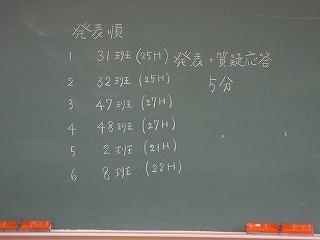 発表順
1 31班(25H)
2 32班(25H)
3 47班(27H)
4 48班(27H)
5 2班(21H)
6 8班(22H)
発表+質疑応答
5分